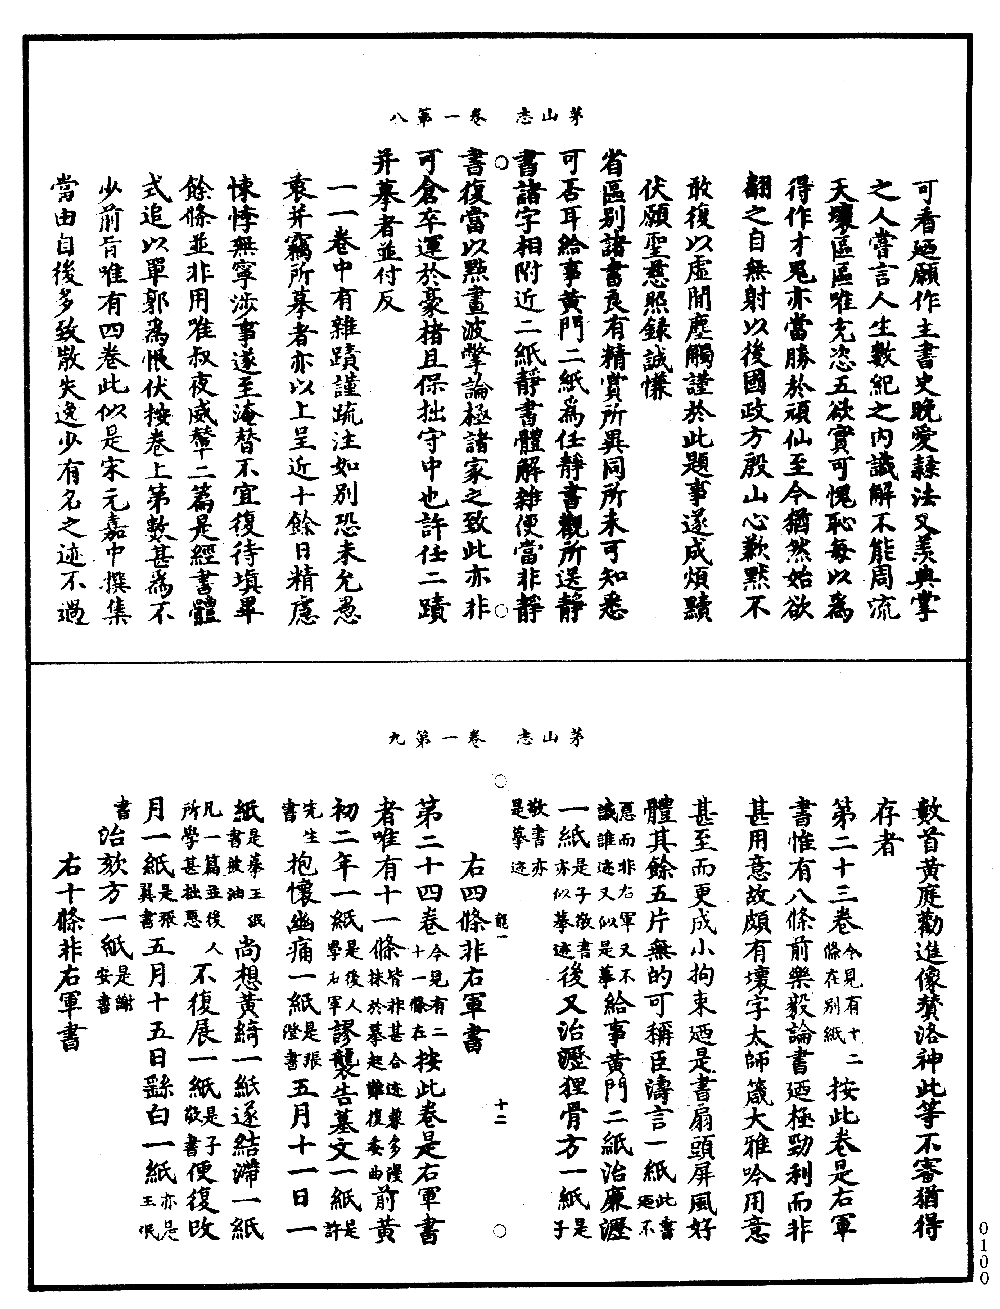 茅山志　卷一第八
可看廼願作主書史晚愛隷法又羨典掌
之人嘗言人生數紀之内識解不能周流
天壤區區唯充恣五欲實可愧恥每以爲
得作才鬼亦當勝於頑仙至今猶然始欲
翻之自無射以後國政方殷山心歉默不
敢復以虛閒塵觸謹於此題事遂成煩黷
伏願聖慈照録誠慊
省區别諸書良有精賞所異同所未可知悉
可否耳給事黄門二紙爲任靜書觀所送靜
書諸字相附近二紙靜書體解雜便當非靜
書復當以點畫波撆論極諸家之致此亦非
可倉卒運於豪楮且保拙守中也許任二蹟
并摹者並付反
一一卷中有雜蹟謹疏注如别恐未允愚
衷并竊所摹者亦以上呈近十餘日精慮
悚悸無寧涉事遂至淹替不宜復待填畢
餘條並非用唯叔夜威輦二篇是經書體
式追以單郭爲恨伏按卷上第數甚爲不
少前旨唯有四卷此似是宋元嘉中撰集
當由自後多致散失逸少有名之迹不過
茅山志　卷一第九
數首黄庭勸進像賛洛神此等不審猶得
存者
第二十三卷今見有十二條在别紙按此卷是右軍
書惟有八條前樂毅論書廼極勁利而非
甚用意故頗有壞字太師箴大雅吟用意
甚至而更成小拘束廼是書扇頭屏風好
體其餘五片無的可稱臣濤言一紙此書廼不
惡而非右軍又不識誰迹又似是摹給事黄門二紙治廉瀝
一紙是子敬書亦似摹迹後又治瀝狸骨方一紙是子
敬書亦是摹迹
右四條非右軍書
龍一　十二
第二十四卷今見有二十一條在按此卷是右軍書
者唯有十一條皆非甚合迹兼多漫抹於摹起難復委曲前黄
初二年一紙是後人學右軍謬襲告墓文一紙是許
先生書抱懷幽痛一紙是張澄書五月十一日一
紙是摹王珉書被油尚想黄綺一紙遂結滯一紙
凡一篇並後人所學甚拙惡不復展一紙是子敬書便復改
月一紙是張翼書五月十五日繇白一紙亦是王珉
書治欬方一紙是謝安書
右十條非右軍書
0100